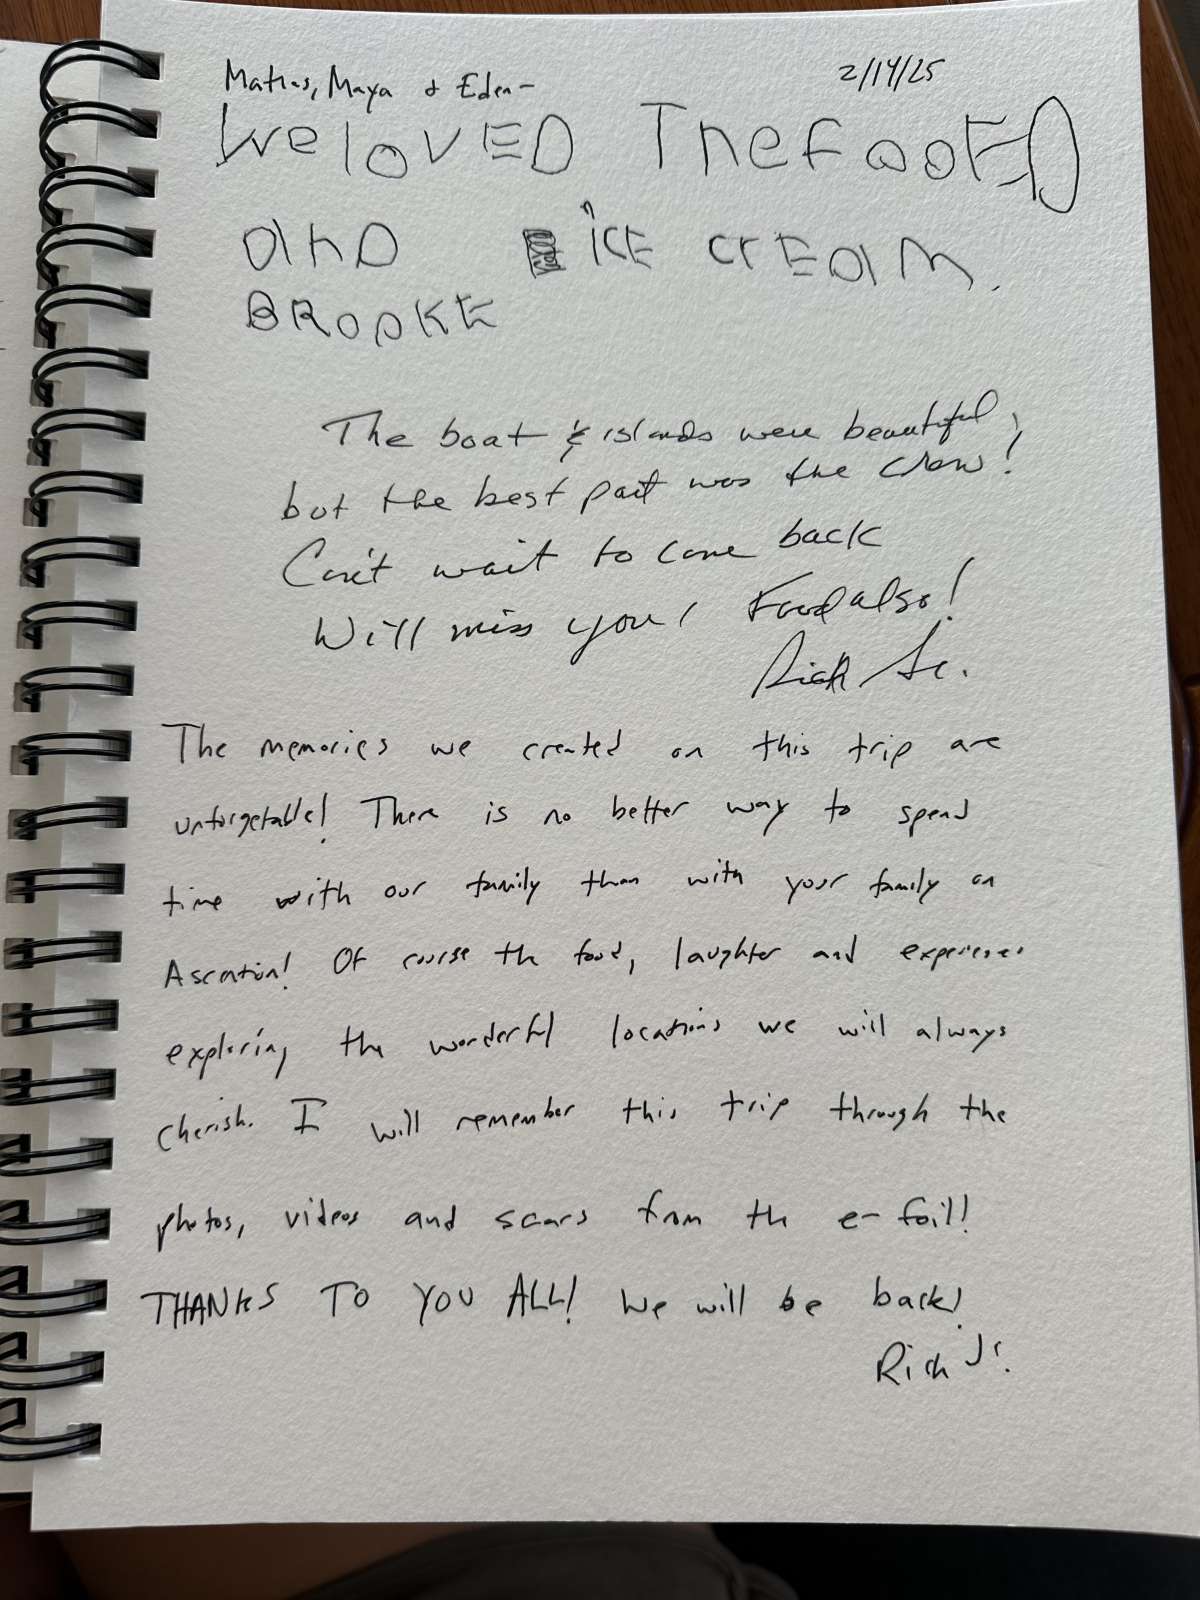 Matias, Maya & Eden- 2/14/25
We loVED The FooD
and icE crEam.
BROOKE
The boat & islands were beautiful,
but the best part was the crew!
Can't wait to come back
Will miss you! Food also!
Rich Sr.
The memories we created on this trip are
unforgetable! There is no better way to spend
time with our family than with your family on
Ascention! Of course the food, laughter and experiences
exploring the wonderful locations we will always
cherish. I will remember this trip through the
photos, videos and scars from the e-foil!
THANKS TO YOU ALL! We will be back!
Rich Jr.